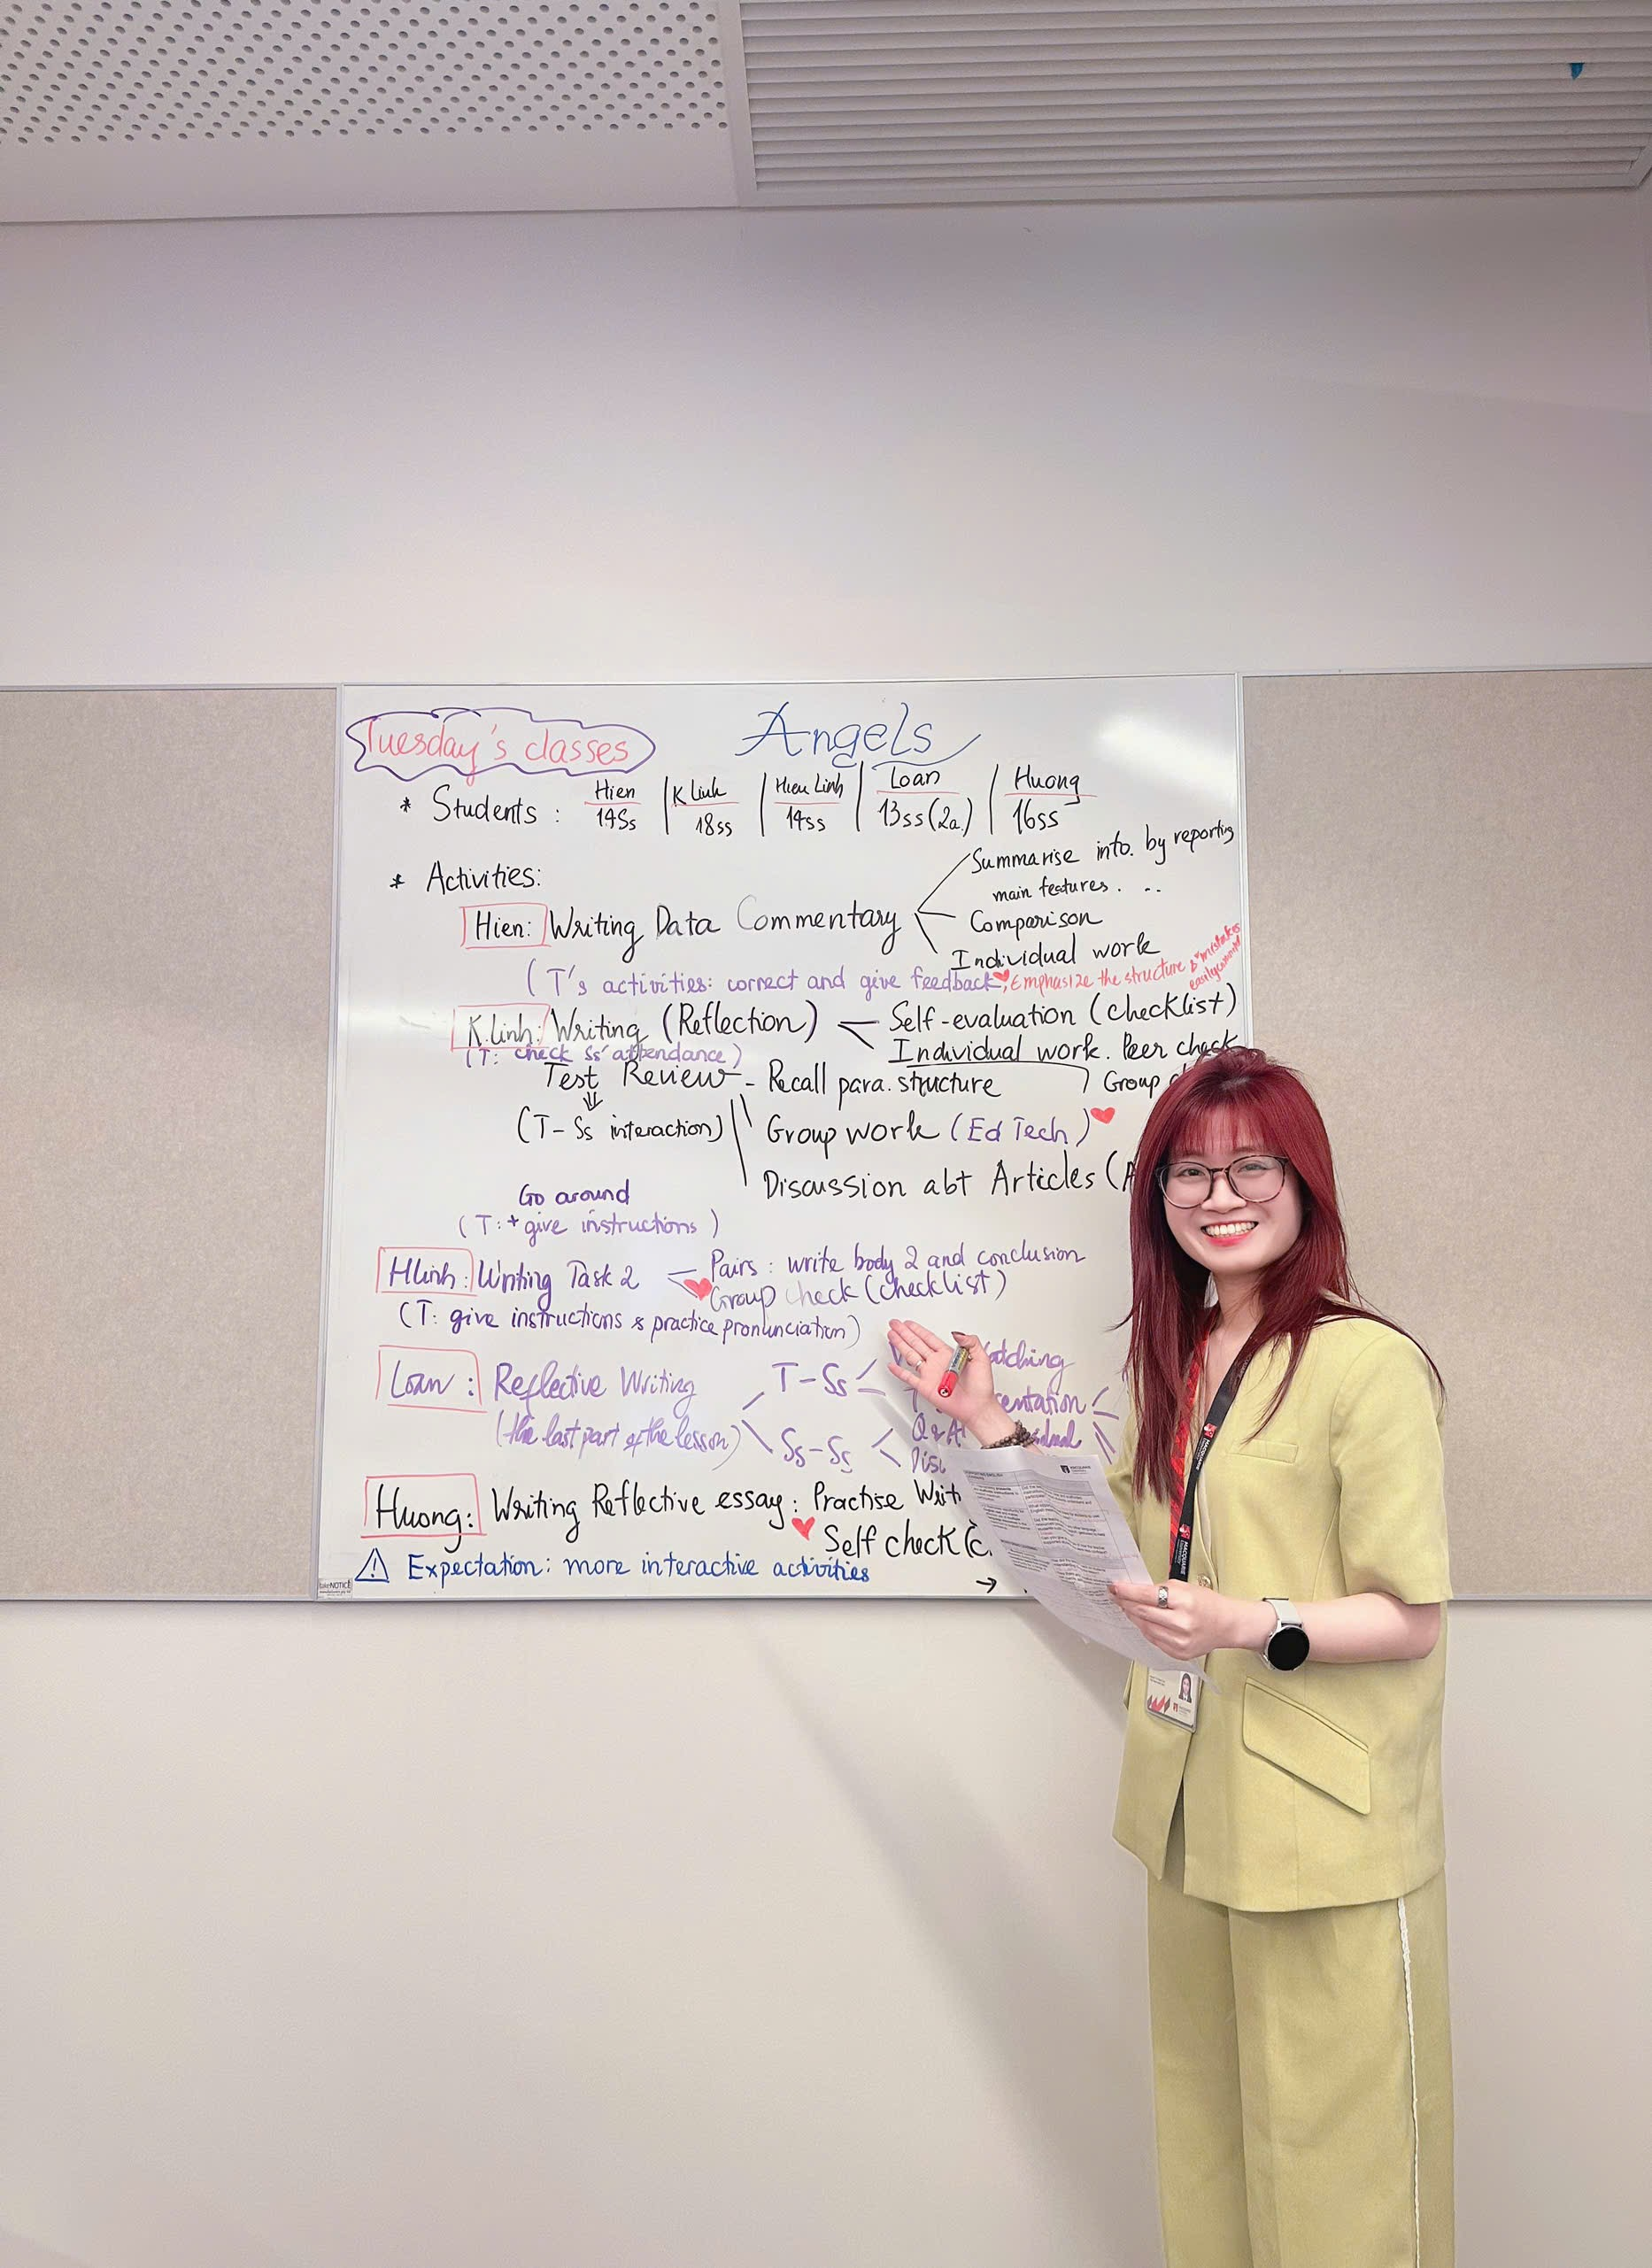 Tuesday's classes
Angels
* Students : Hien 14Ss | K Linh 18ss | Hien Linh 14ss | Loan 13ss (2a.) | Huong 16ss
* Activities:
Summarise info. by reporting
main features. ..
Hien: Writing Data Commentary
Comparison
Individual work
(T's activities: correct and give feedback, Emphasize the structure & mistakes
K.linh: Writing (Reflection)
Self-evaluation (checklist)
(T: check Ss' attendance)
Individual work. Peer check
Test Review - Recall para. structure
Group
(T-Ss interaction)
Group work (Ed Tech)
Discussion abt Articles (
Go around
(T: + give instructions)
Hlinh: Writing Task 2
Pairs: write body 2 and conclusion
Group check (checklist)
(T: give instructions & practice pronunciation)
Loan: Reflective Writing
T-Ss
(the last part of the lesson)
Ss-Ss
Q&A
Huong: Writing Reflective essay: Practise
Self check
Expectation: more interactive activities
→
MACQUARIE